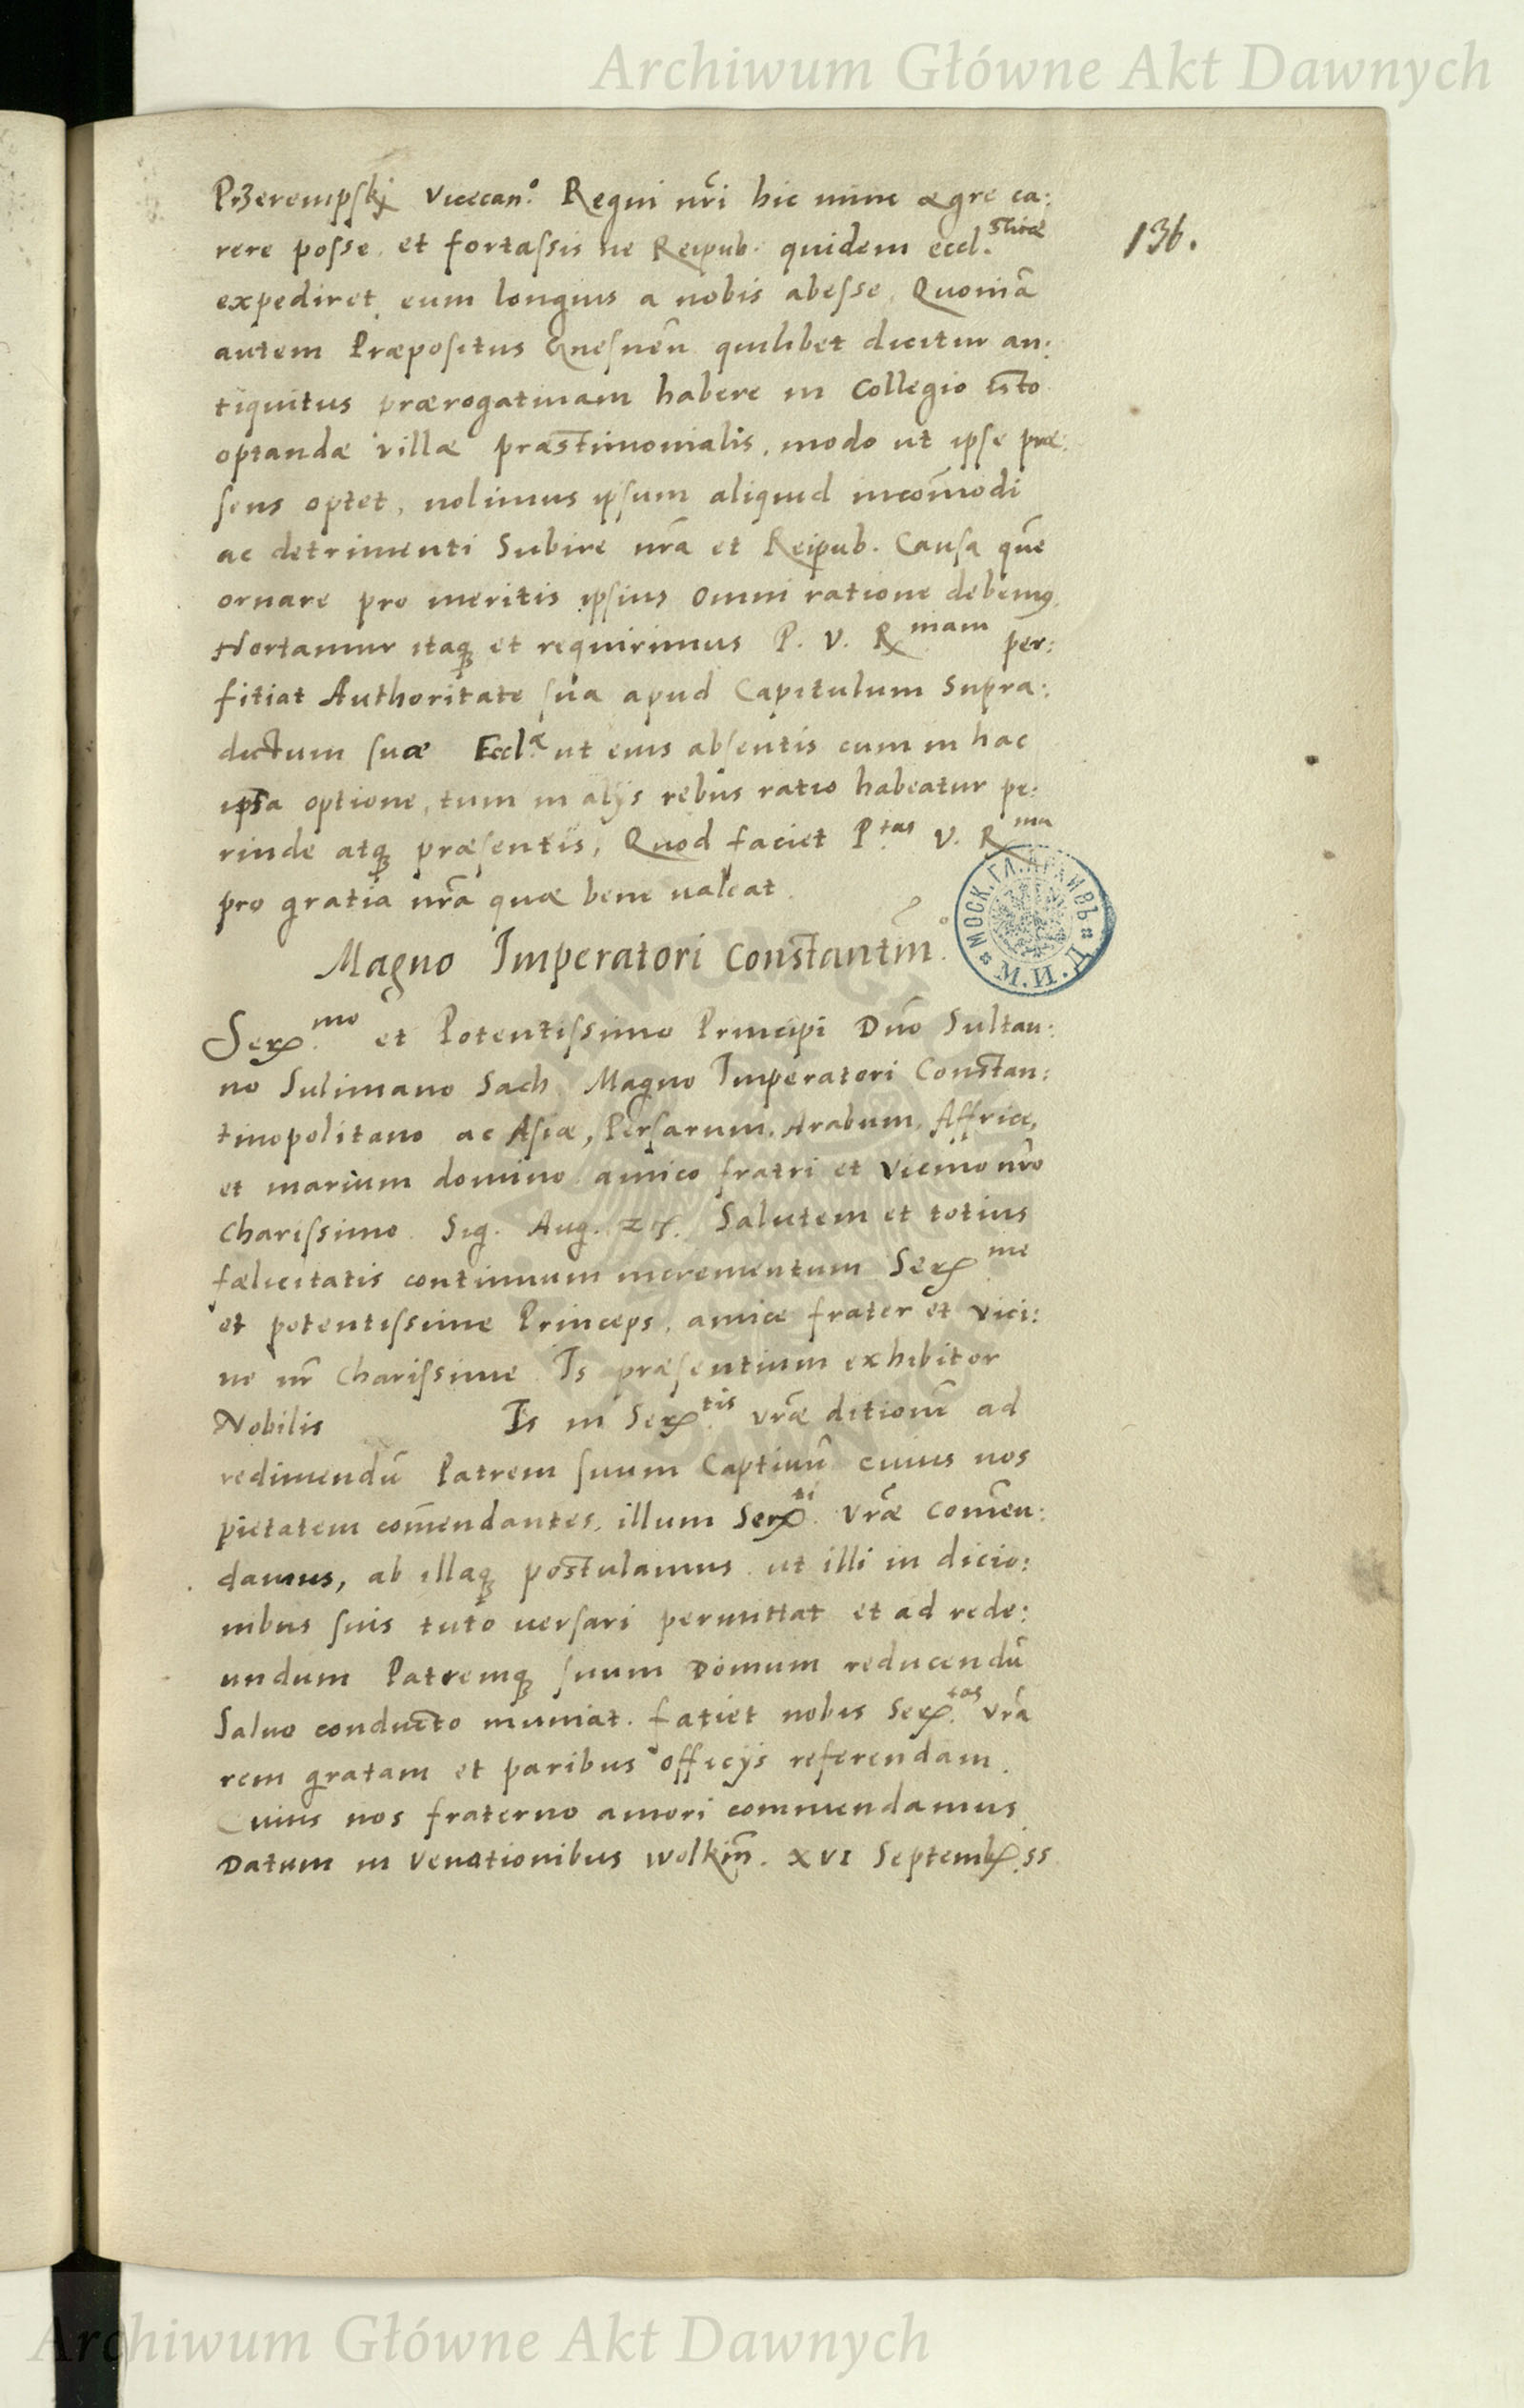 Archiwum Główne Akt Dawnych
Przerempskj Vicecan.º Regni nr̃i hic nunc ægre ca:
136.
rere posse, et fortassis ne Reipub. quidem eccl.sticæ
expediret, eum longius a nobis abesse, Quoniã
autem Præpositus Gnesneñ quilibet dicitur an:
tiquitus prærogatiuam habere in Collegio isto
optandæ villæ præstimonialis, modo ut ipse præ:
sens optet, nolimus ipsum aliquid incom̃odi
ac detrimenti Subire nr̃a et Reipub. Causa quẽ
ornare pro meritis ipsius omni ratione debemꝰ.
Hortamur itaqꝫ et requirimus P. V. R.mam per:
fitiat Authoritate sua apud Capitulum Supra:
dictum suæ Eccl.æ ut eius absentis cum in hac
ipsa optione, tum in alijs rebus ratio habeatur pe:
rinde atqꝫ præsentis, Quod faciet P.tas V. R.ma
pro gratia nr̃a quæ bene valeat.
Magno Imperatori Constantiñ.º
МОСК. ГЛ. АРХИВЪ М.И.Д.
Ser.mo et Potentissimo Principi Dño Sultan:
no Sulimano Sach, Magno Imperatori Constan:
tinopolitano ac Asiæ, Persarum, Arabum, Affricæ,
et marium domino amico fratri et Vicino nr̃o
Charissimo. Sig. Aug. Salutem et totius
fælicitatis continuum incrementum Ser.me
et potentissime Princeps, amice frater et vici:
ne nr̃ Charissime. Is præsentium exhibitor
Nobilis Is in Ser.tis vr̃æ ditionẽ ad
redimendũ Patrem suum Captiuũ cuius nos
pietatem com̃endantes, illum Ser.ti Vr̃æ Com̃en:
damus, ab illaqꝫ postulamus ut illi in dicio:
nibus suis tuto uersari permittat et ad rede:
undum Patremqꝫ suum Domum reducendũ
Saluo conducto muniat. fatiet nobis Ser.tas vr̃a
rem gratam et paribus officijs referendam.
Cuius nos fraterno amori commendamus.
Datum in Venationibus Wolkiñ. XVI Septemb. 55
Archiwum Główne Akt Dawnych